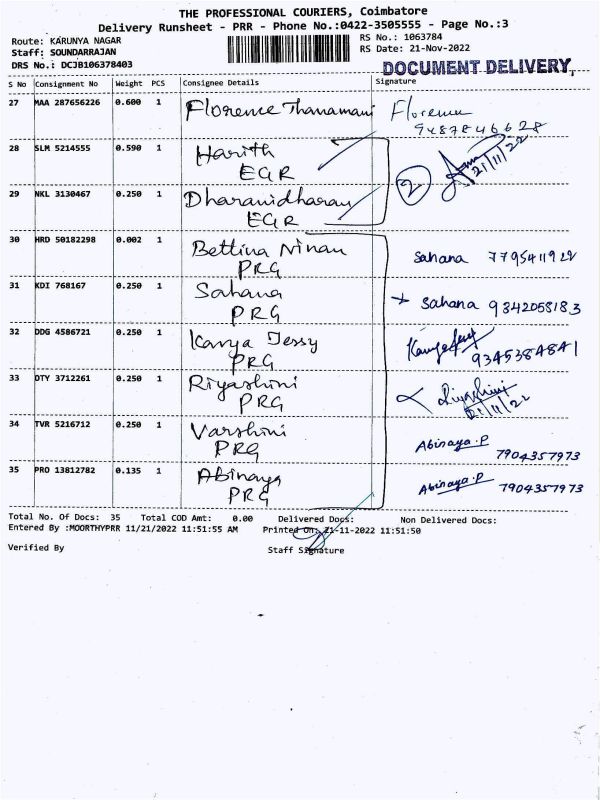 THE PROFESSIONAL COURIERS, Coimbatore
Delivery Runsheet - PRR - Phone No.:0422-3505555 - Page No.:3
Route: KARUNYA NAGAR
Staff: SOUNDARRAJAN
DRS No.: DCJB106378403
RS No.: 1063784
RS Date: 21-Nov-2022
DOCUMENT DELIVERY,
S No Consignment No Weight PCS Consignee Details Signature
27 MAA 287656226 0.600 1 Florence Thanamani Florence
9487846628
28 SLM 5214555 0.590 1 Harith
EGR
2 21/11/22
29 NKL 3130467 0.250 1 Dharanidharan
EGR
30 HRD 50182298 0.002 1 Bettina Ninan
PRG
Sahana 7795411922
31 KDI 768167 0.250 1 Sahana
PRG
Sahana 9842058183
32 DDG 4586721 0.250 1 Kavya Jessy
PRG
9345384841
33 DTY 3712261 0.250 1 Riyashini
PRG
Riyashini
21/11/22
34 TVR 5216712 0.250 1 Varshini
PRG
Abinaya.P
7904357973
35 PRO 13812782 0.135 1 Abinaya
PRG
Abinaya.P 7904357973
Total No. Of Docs: 35 Total COD Amt: 0.00 Delivered Docs: Non Delivered Docs:
Entered By :MOORTHYPRR 11/21/2022 11:51:55 AM Printed On: 21-11-2022 11:51:50
Verified By Staff Signature